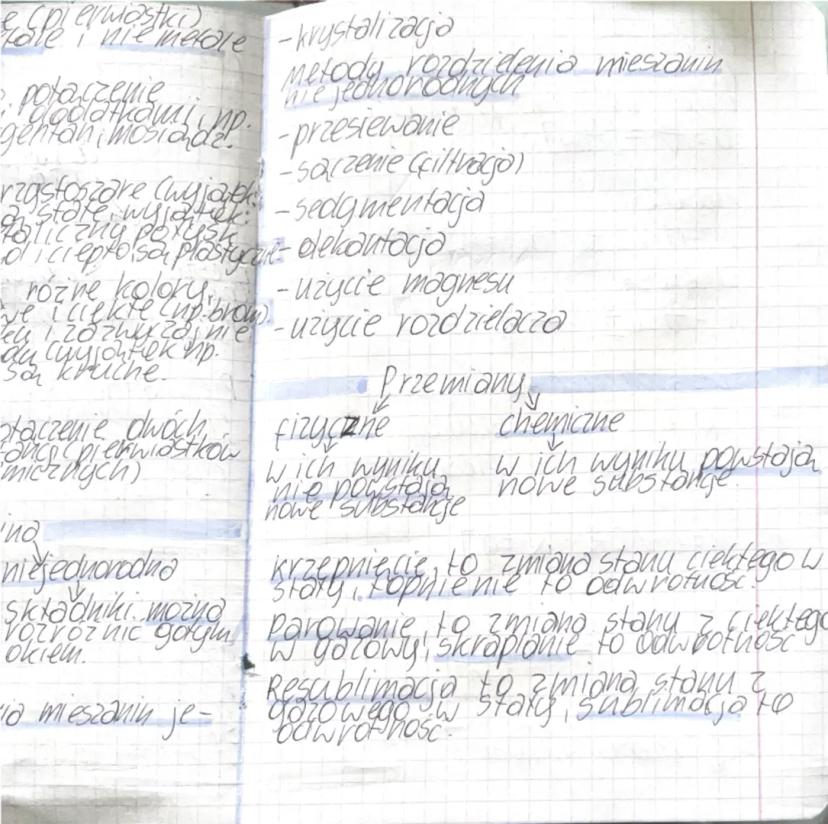 e (pierwiastki)
i niemetale
połączenie
dodatkami, np.
mosiądz.
(wyjątek:
stałe, wyjątek:
połysk
i ciepło, są plastyczne
różne kolory,
i ciekłe (np. brom).
i zazwyczaj nie
(wyjątek np.
są kruche.
dwóch
(pierwiastków
micznych)
niejednorodna
składniki można
rozróżnić gołym
okiem.
mieszanin je-
-krystalizacja
metody rozdzielenia mieszanin
niejednorodnych
-przesiewanie
-sączenie (filtracja)
-sedymentacja
-dekantacja
-użycie magnesu
-użycie rozdzielacza
Przemiany
fizyczne chemiczne
w ich wyniku w ich wyniku powstają
nie powstają nowe substancje
nowe substancje
krzepnięcie to zmiana stanu ciekłego w
stały, topnienie to odwrotność.
Parowanie to zmiana stanu z ciekłego
w gazowy, skraplanie to odwrotność
Resublimacja to zmiana stanu z
gazowego w stały, sublimacja to
odwrotność.